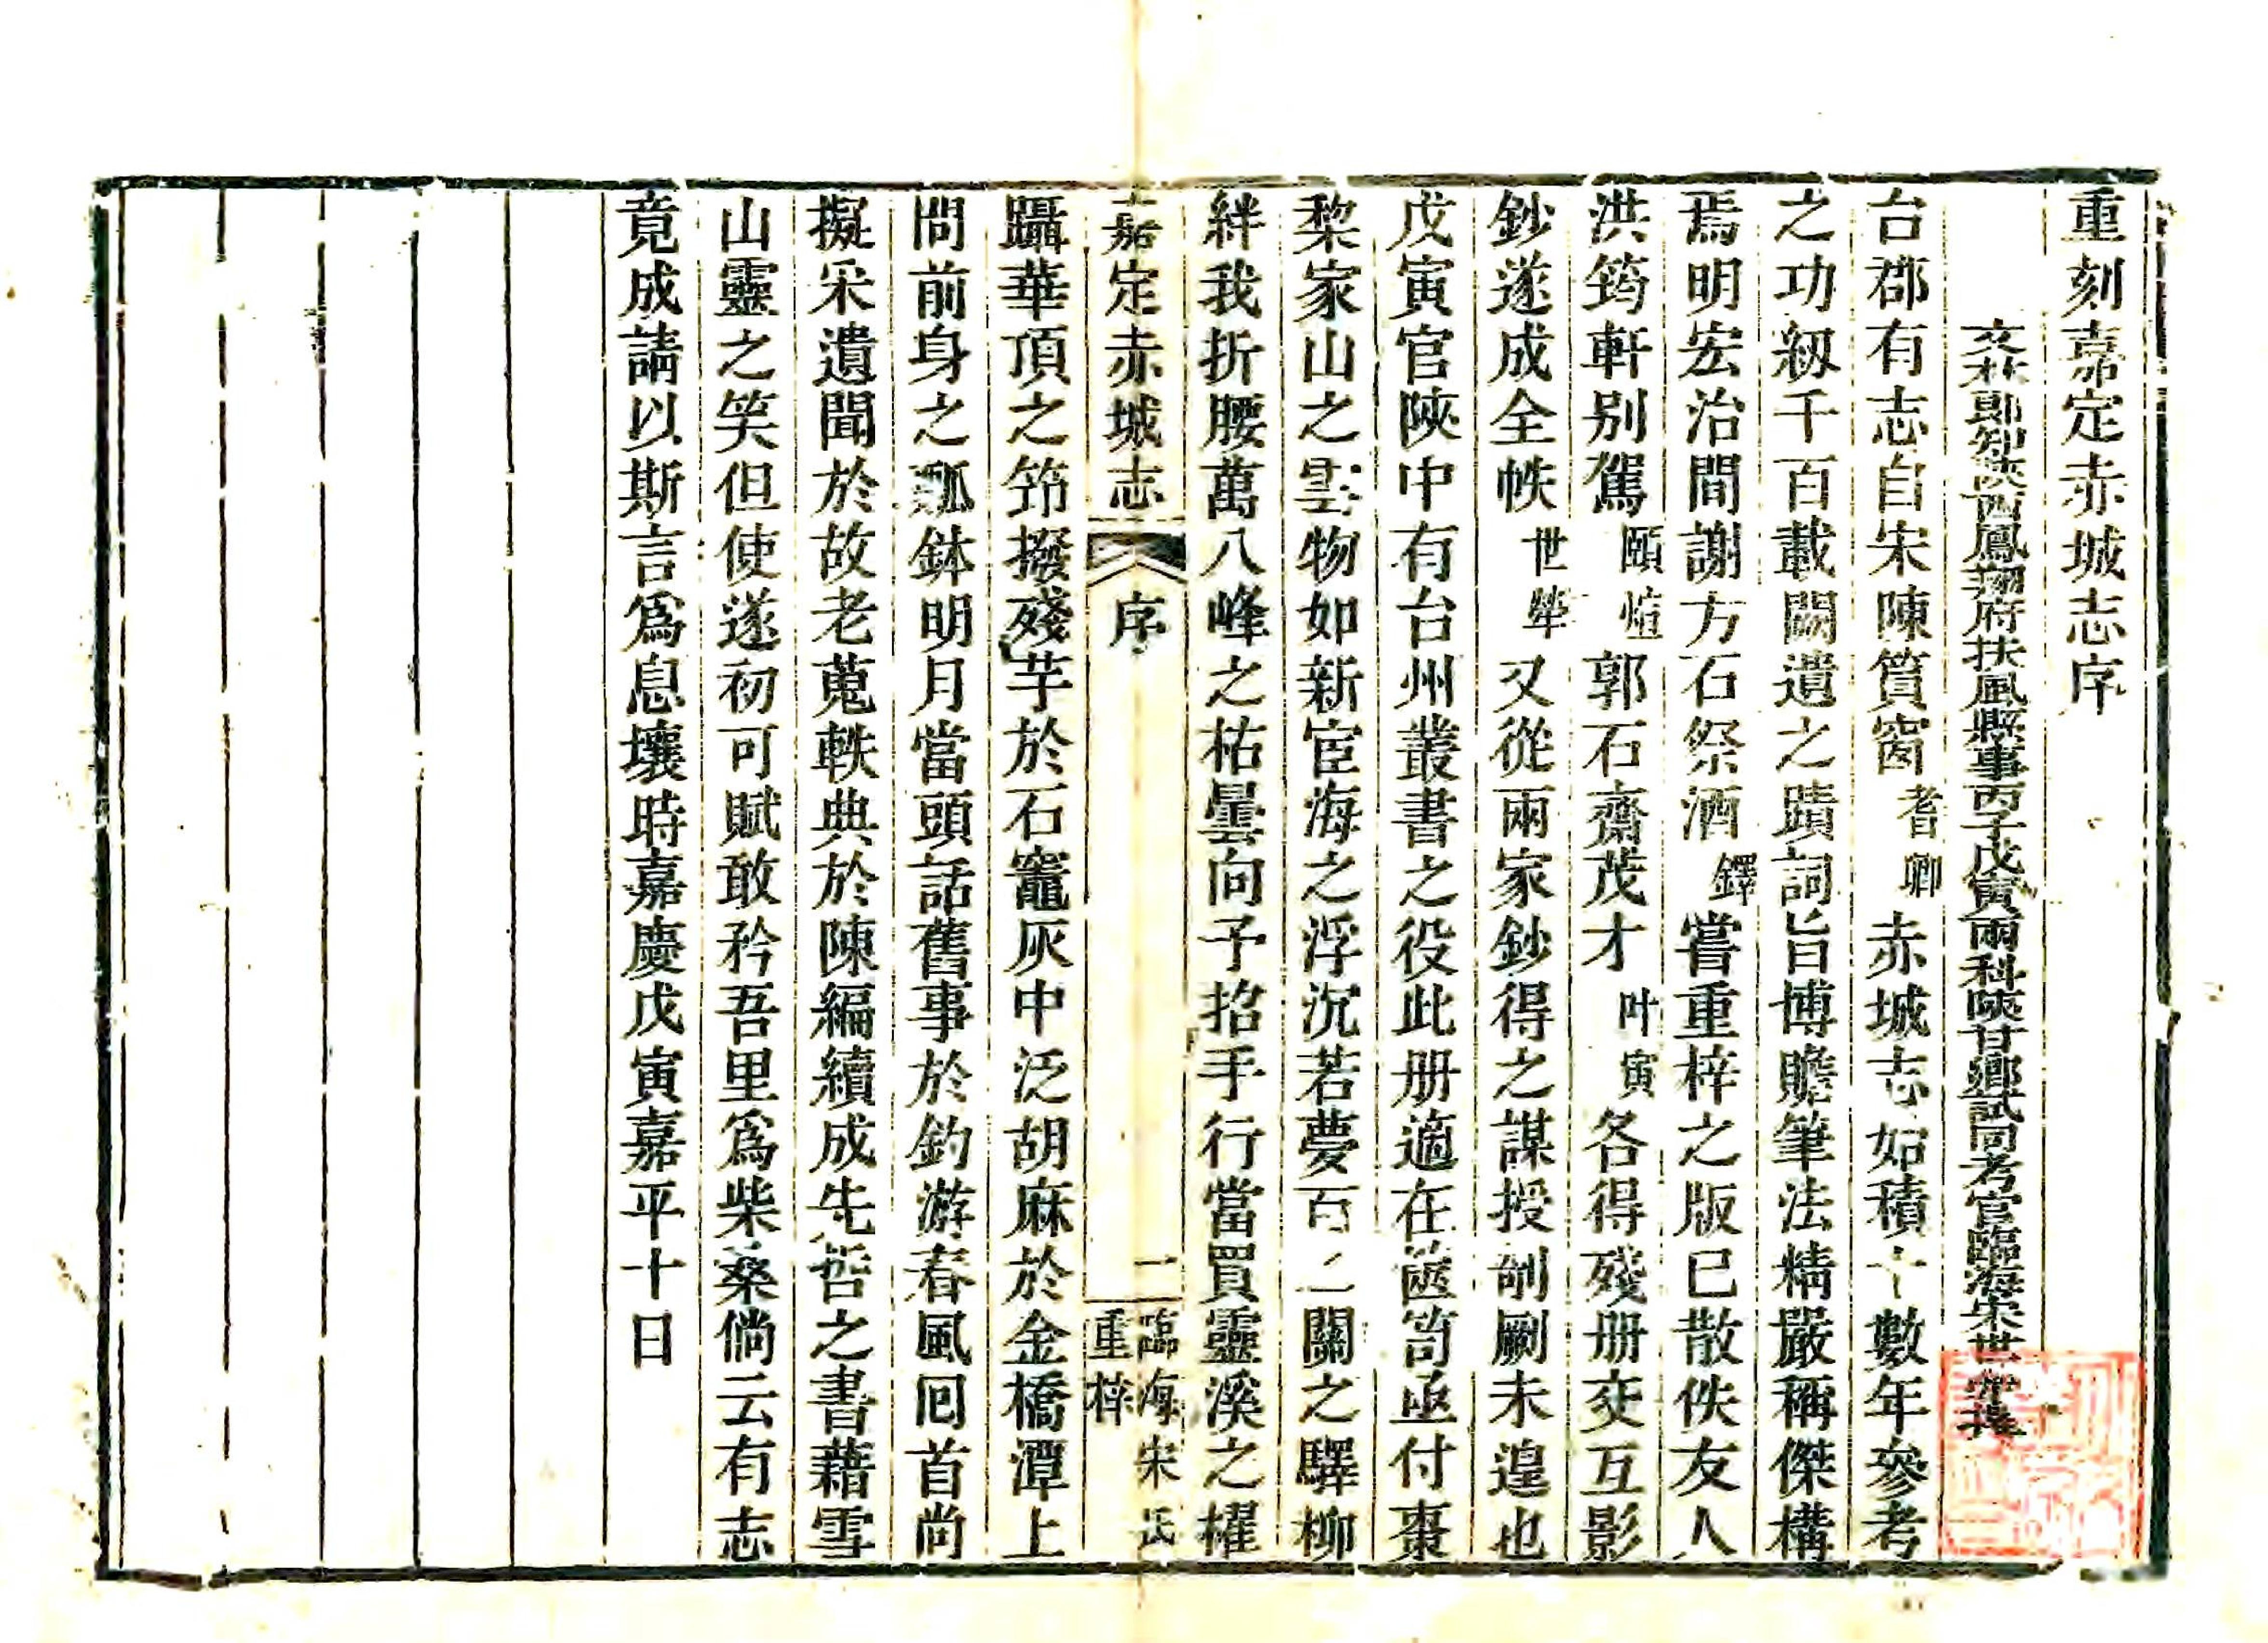 重刻嘉定赤城志序
文林郎知陝西鳳翔府扶風縣事丙子戊寅兩科陝甘鄉試同考官臨海宋世犖撰
台郡有志自宋陳篔窗耆卿赤城志始積十數年參考
之功剏千百載闕遺之蹟詞旨博贍筆法精嚴稱傑構
焉明宏治間謝方石祭酒鐸嘗重梓之版已散佚友人
洪筠軒別駕頤煊郭石齋茂才叶寅各得殘册交互影
鈔遂成全帙世犖又從兩家鈔得之謀授剞劂未遑也
戊寅官陝中有台州叢書之役此册適在篋笥亟付棗
棃家山之雲物如新宦海之浮沉若夢百二關之驛柳
絆我折腰萬八峰之枯曇向予招手行當買靈溪之櫂
嘉定赤城志 序 二 臨海宋氏重梓
躡華頂之笻撥殘芋於石竈灰中泛胡麻於金橋潭上
問前身之瓢鉢明月當頭話舊事於釣游春風回首尚
擬采遺聞於故老蒐軼典於陳編續成先哲之書藉雪
山靈之笑但使遂初可賦敢矜吾里爲柴桑倘云有志
竟成請以斯言爲息壤時嘉慶戊寅嘉平十日